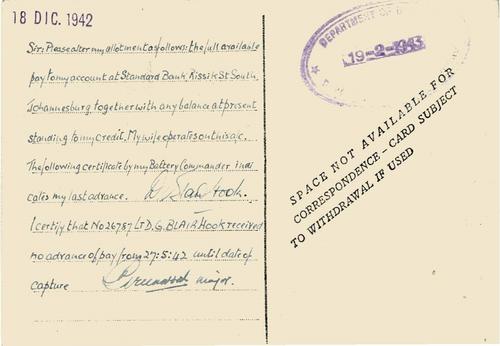 18 DIC. 1942
Sir: Please alter my allotment as follows: the full available
pay to my account at Standard Bank, Rissik St South,
Johannesburg, together with any balance at present
standing to my credit. My wife operates on this a/c.
The following certificate by my Battery Commander indi
cates my last advance.
I certify that No 26787 LT D. G. BLAIR HOOK received
no advance of pay from 27:5:42 until date of
capture major.
DEPARTMENT OF
19-2-1943
SPACE NOT AVAILABLE FOR
CORRESPONDENCE - CARD SUBJECT
TO WITHDRAWAL IF USED